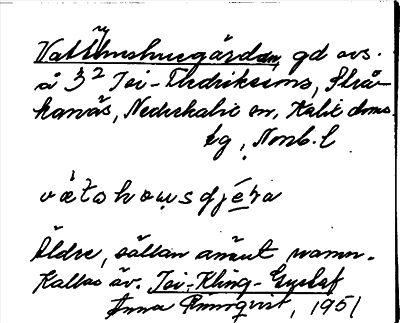 Vattenhusgården, gd avs.
å 3² Joi-Fredrikssons, Strå-
kanäs, Nederkalix sn, Kalix doms.
tg, Norrb. l
vætəhoʉsgjéra
Äldre, sällan använt namn.
Kallas äv. Joi-Kling-Gustaf
Anna Rönnqvist, 1951